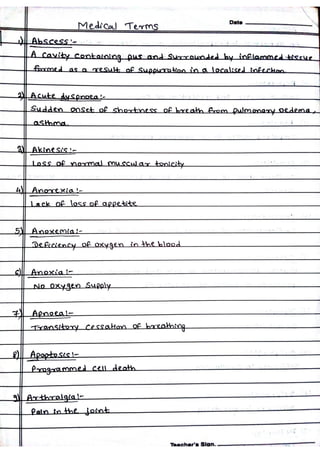 Date
Medical Terms
1) Abscess :-
A cavity containing pus and surrounded by inflammed tissue
formed as a result of suppuration in a localised infection.
2) Acute dyspnoea :-
Sudden onset of shortness of breath from pulmonary oedema,
asthma.
3) Akinesis :-
Loss of normal muscular tonicity
4) Anorexia :-
Lack of loss of appetite
5) Anoxemia :-
Deficiency of oxygen in the blood
6) Anoxia :-
No oxygen supply
7) Apnoea :-
Transitory cessation of breathing
8) Apoptosis :-
Programmed cell death
9) Arthralgia :-
Pain in the joint
Teacher's Sign.